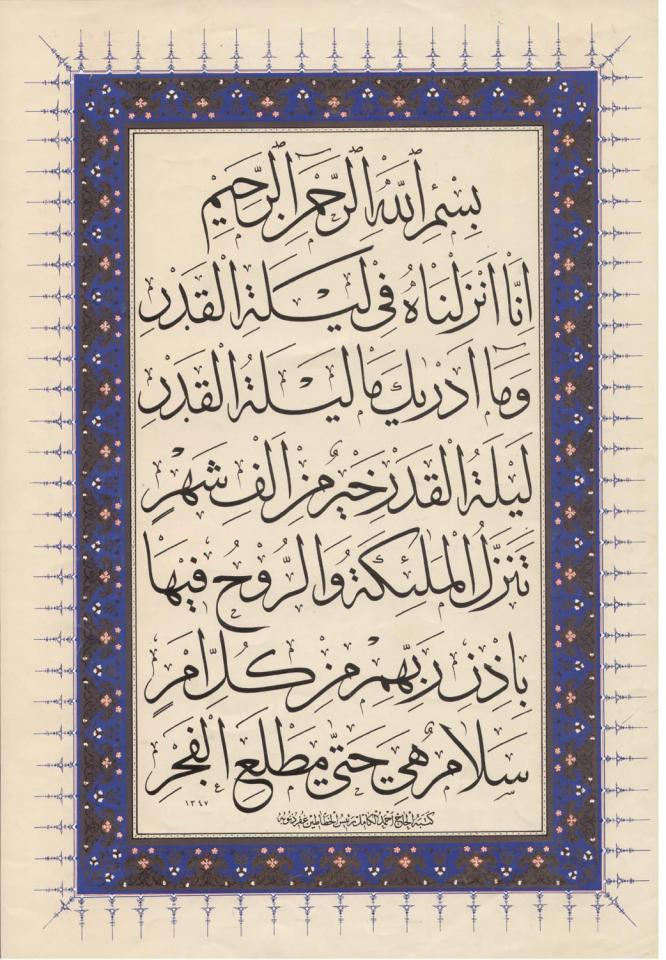 بِسْمِ اللّٰهِ الرَّحْمٰنِ الرَّحِيمِ
اِنَّا اَنْزَلْنَاهُ فِى لَيْلَةِ الْقَدْرِ
وَمَا اَدْرٰيكَ مَا لَيْلَةُ الْقَدْرِ
لَيْلَةُ الْقَدْرِ خَيْرٌ مِنْ اَلْفِ شَهْرٍ
تَنَزَّلُ الْمَلٰئِكَةُ وَالرُّوحُ فِيهَا
بِاِذْنِ رَبِّهِمْ مِنْ كُلِّ اَمْرٍ
سَلَامٌ هِىَ حَتّٰى مَطْلَعِ الْفَجْرِ
١٣٤٧
كتبه الحاج احمد الكامل رئيس الخطاطين غفر ذنوبه